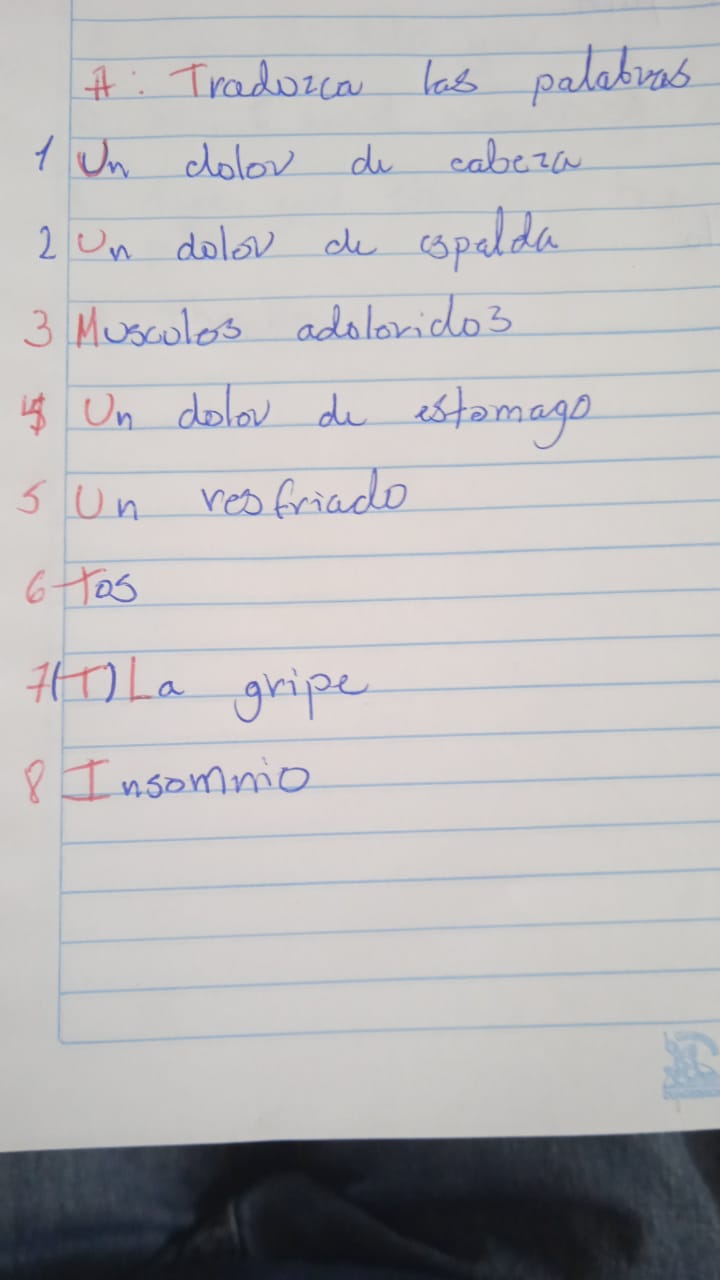 A: Traduzca las palabras
1 Un dolor de cabeza
2 Un dolor de espalda
3 Musculos adoloridos
4 Un dolor de estomago
5 Un resfriado
6 Tos
7 (T) La gripe
8 Insomnio